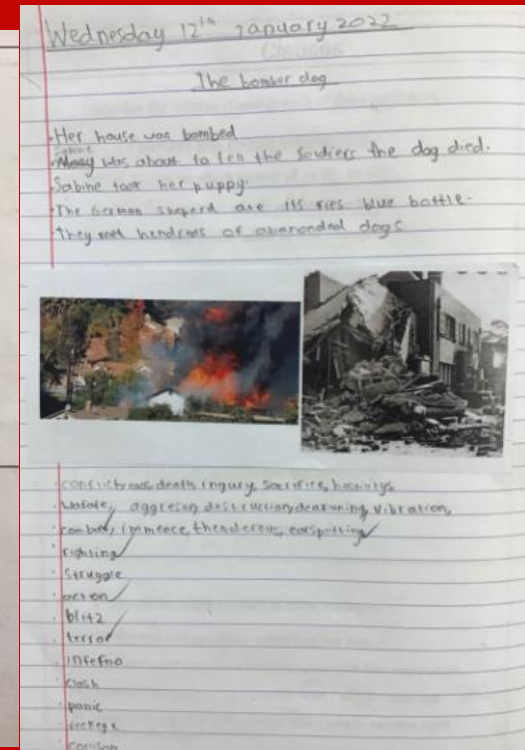 Wednesday 12th January 2022
The bomber dog
Her house was bombed
Sabine
was about to tell the Soldiers the dog died.
Sabine took her puppy.
The German sheperd are its blue bottle.
They met hendreds of abanonded dogs.
death, ingury, Sacrifice,
aggreson, destruction, deafuning, vibration,
combat, immence, thenderous,
fighting
Struggle
action
blitz
terror
inferno
clash
panic